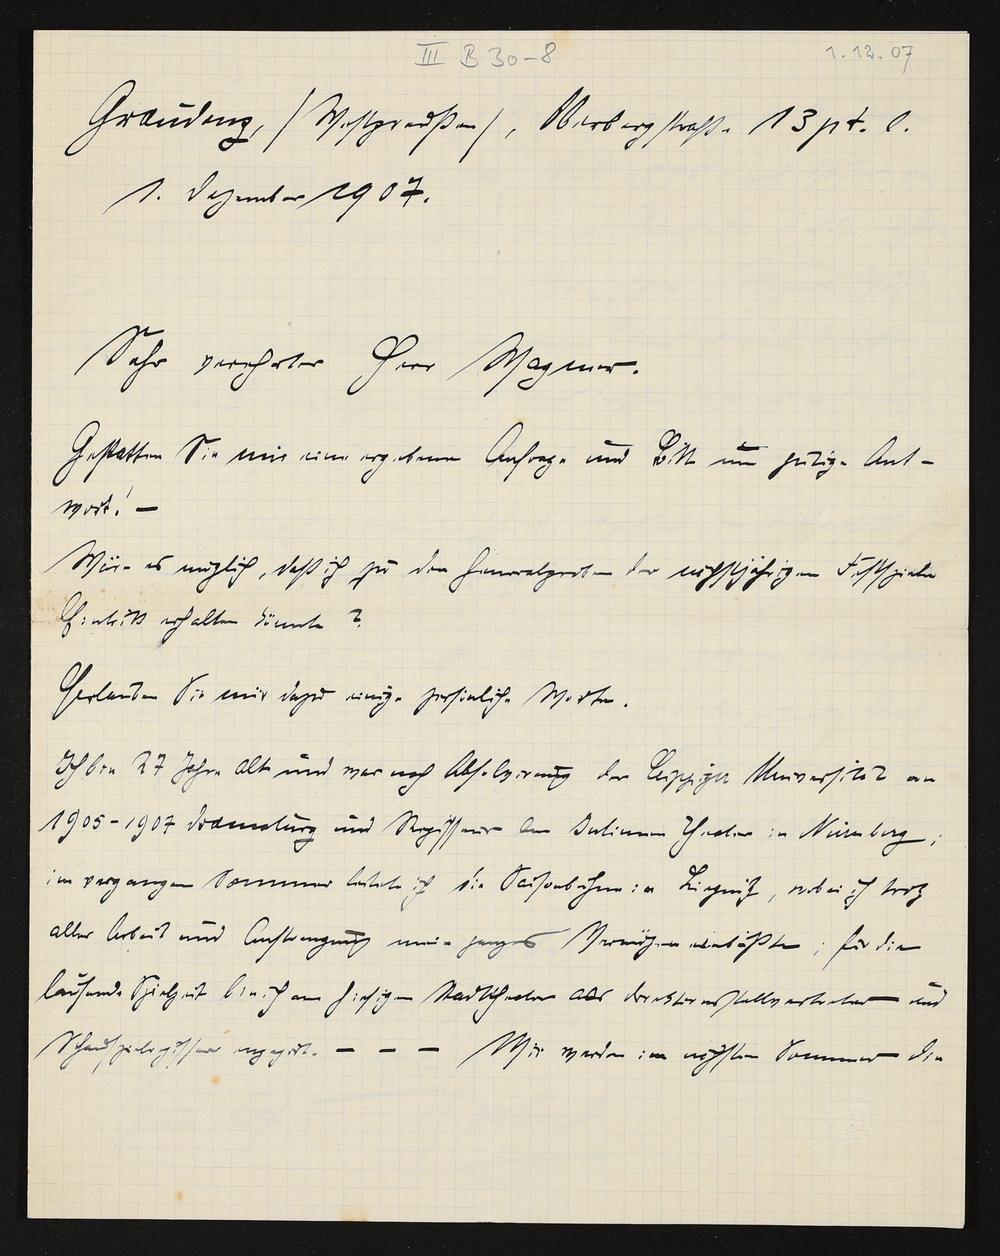 III B 30-8
1.12.07
Graudenz, /Westpreußen/, Oberbergstraße 13 pt. l.
1. Dezember 1907.
Sehr verehrter Herr Wagner.
Gestatten Sie mir eine ergebene Anfrage und Bitte um gütige Ant-
wort! —
Wäre es möglich, daß ich zu den Generalproben der nächstjährigen Festspiele
Eintritt erhalten könnte?
Erlauben Sie mir dazu einige persönliche Worte.
Ich bin 27 Jahre alt und war nach Absolvierung der Leipziger Universität von
1905-1907 Dramaturg und Regisseur am Intimen Theater in Nürnberg;
im vergangenen Sommer leitete ich die Saisonbühne in Liegnitz, wobei ich trotz
aller Arbeit und Anstrengung mein ganzes Vermögen einbüßte; für die
laufende Spielzeit bin ich am hiesigen Stadttheater als Direktorstellvertreter und
Schauspielregisseur engagirt. — — — Mir werden im nächsten Sommer die